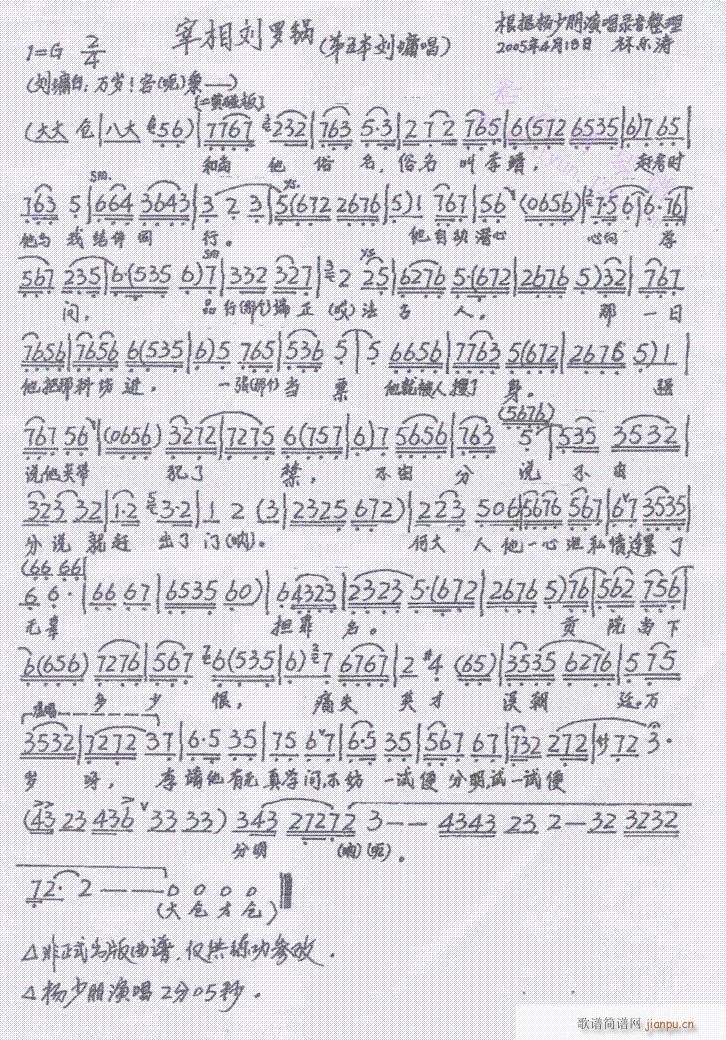 宰相刘罗锅(第五本刘墉唱)
根据杨少朋演唱录音整理
2005年4月18日
1=G 2/4
(刘墉白:万岁!容(呃)禀——)
(大大 仓|八大 56)|7767 232|763 5·3|2 7 2 765|6(572 6535|6)7 65|
和尚 他 俗 名,俗名 叫 李靖, 赶考时
763 5|664 3643|3 2 3|5(672 2676|5)1 767|56 (0656)|75 6|6·76|
他与 我 结伴 同 行。 他自幼潜心 心向 学
567 235|6·(535 6)7|332 327|2 25|6276 5·(672|2676 5)32|767
问, 品行(那个)端 正 (哎)法 古 人。 那 一日
7656|7656 6(535|6)5 765|536 5|5 6656|7763 5(672|2676 5)1|
他把那科场 进, 一张(那个)当 票 他就被人搜了 身。 强
767 56|(0656) 3272|7275 6(757|6)7 5656|763 5|535 3532|
(5676)
说他夹带 犯了 禁, 不由 分 说 不 由
323 32|1·2 3·2|1 2 (3|2325 672)|223 506|5676 567|67 3535|
分说 就赶 出了门(呐)。 何大 人 他一心泄私愤连累了
(66 66|
6 6·|66 67|6535 60)|64323|2323 5·(672|2676 5)76|562 756|
无辜 担罪 名。 贡 院 当下
6(656) 7276|567 6(535|6) 7 6767|2 #4 (65)|3535 6276|5 75|
多 少 恨, 痛失 英才 误朝 廷。万
3532|7272 37|6·5 35|75 67|6·5 35|567 67|732 272|72 3·
岁 呀, 李靖他有无真学问,不妨 一试便 分明,试一试便
(43 23 436 33 33) 343 27272 3—— 4343 23 2—32 3232
分明 (呐)(呃)。
72· 2 ——— 0 0 0 0
(大 仓 才 仓)
△非正式出版曲谱,仅供练功参改.
△杨少朋演唱2分05秒.
歌谱简谱网 jianpu.cn